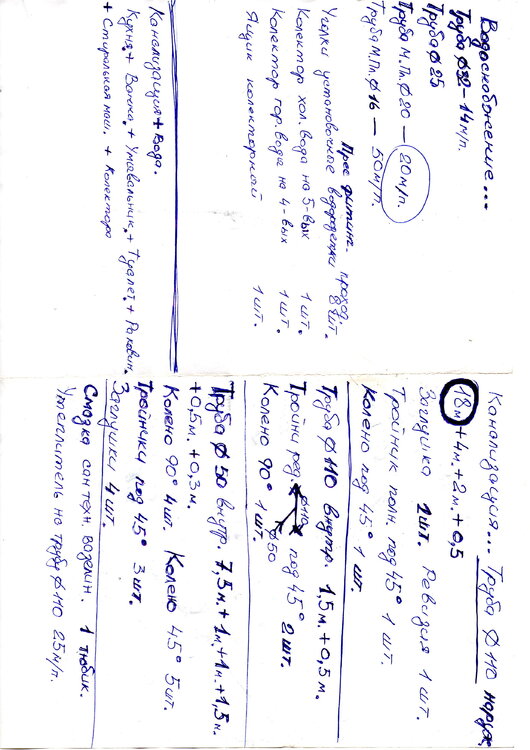 Водоснобжение...
Труба ф32 - 14м/п.
Труба ф25
Труба М.Пл. ф20 — 80м/п.
Труба М.Пл. ф16 — 50м/п.
Прес фитинг.
Уголки установочные водорозетки проход. 8шт.
Колектор хол. вода на 5-вых 1шт.
Колектор гор. вода на 4-вых 1шт.
Ящик колекторный 1шт.
Канализация + вода.
Кухня. + Ванна. + Умывальник. + Туалет. + Раковин.
+ Стиральная маш. + Колектора
Канализация... Труба ф110 наруж.
18м + 4м. + 2м. + 0,5
Заглушка 1шт. Ревизия 1шт.
Тройник полн. под 45° 1шт.
Колено под 45° 1шт.
Труба ф110 внутр. 1,5м. + 0,5м.
Тройни ред. ф110 под 45° 2шт.
ф50
Колено 90° 1шт.
Труба ф50 внутр. 7,5м. + 1м. + 1м. + 1,5м.
+ 0,5м. + 0,3м.
Колено 90° 4шт. Колено 45° 5шт.
Тройники под 45° 3шт.
Заглушки 4шт.
Смазка сантехн. вазелин. 1 тюбик.
Утеплитель на трубу ф110 25м/п.